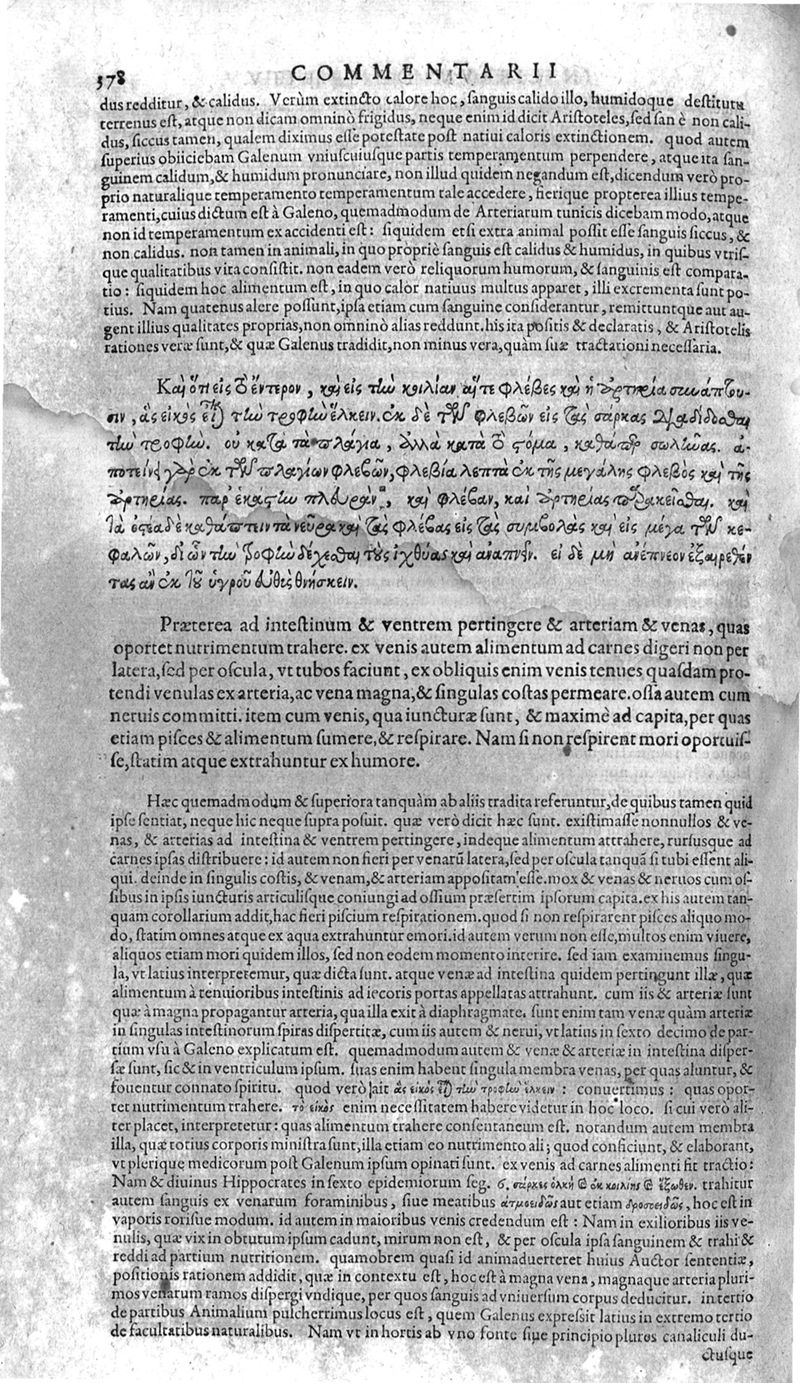 578
COMMENTARII
dus redditur, & calidus. Verùm extincto calore hoc, sanguis calido illo, humidoque destitutu
terrenus est, atque non dicam omninò frigidus, neque enim id dicit Aristoteles, sed sanè non cali-
dus, siccus tamen, qualem diximus esse potestate post natiui caloris extinctionem. quod autem
superius obiiciebam Galenum vniuscuiusque partis temperamentum perpendere, atque ita san-
guinem calidum, & humidum pronunciare, non illud quidem negandum est, dicendum verò pro-
prio naturalique temperamento temperamentum tale accedere, fierique propterea illius tempe-
ramenti, cuius dictum est à Galeno, quemadmodum de Arteriarum tunicis dicebam modo, atque
non id temperamentum ex accidenti est: siquidem etsi extra animal possit esse sanguis siccus, &
non calidus. non tamen in animali, in quo propriè sanguis est calidus & humidus, in quibus vtris-
que qualitatibus vita consistit. non eadem verò reliquorum humorum, & sanguinis est compara-
tio: siquidem hoc alimentum est, in quo calor natiuus multus apparet, illi excrementa sunt po-
tius. Nam quatenus alere possunt, ipsa etiam cum sanguine considerantur, remittuntque aut au-
gent illius qualitates proprias, non omninò alias reddunt. his ita positis & declaratis, & Aristotelis
rationes veræ sunt, & quæ Galenus tradidit, non minus vera, quàm suæ tractationi necessaria.
Καὶ ὅτι εἰς τὸ ἔντερον, καὶ εἰς τὴν κοιλίαν αἵτε φλέβες καὶ ἡ ἀρτηρία συνάπτου-
σιν, ἃς εἰκὸς εἶναι τὴν τροφὴν ἕλκειν. ἐκ δὲ τῶν φλεβῶν εἰς τὰς σάρκας διαδίδοσθαι
τὴν τροφὴν. οὐ κατὰ τὰ πλάγια, ἀλλὰ κατὰ τὸ στόμα, καθάπερ σωλῆνας. ἀ-
ποτείνειν γὰρ ἐκ τῶν πλαγίων φλεβῶν, φλεβία λεπτὰ ἐκ τῆς μεγάλης φλεβὸς καὶ τῆς
ἀρτηρίας. παρ' ἑκάστην πλευρὰν, καὶ φλέβαν, καὶ ἀρτηρίας παρακεῖσθαι. καὶ
τὰ ὀστέα δὲ καθάπτειν τὰ νεῦρα καὶ τὰς φλέβας εἰς τὰς συμβολὰς καὶ εἰς μέγα τῶν κε-
φαλῶν, δι ὧν τὴν τροφὴν δέχεσθαι τοὺς ἰχθύας καὶ ἀναπνεῖν. εἰ δὲ μὴ ἀνέπνεον ἐξαιρεθέν
τας ἂν ἐκ τοῦ ὑγροῦ εὐθὺς θνήσκειν.
Præterea ad intestinum & ventrem pertingere & arteriam & venas, quas
oportet nutrimentum trahere. ex venis autem alimentum ad carnes digeri non per
latera, sed per oscula, vt tubos faciunt, ex obliquis enim venis tenues quasdam pro-
tendi venulas ex arteria, ac vena magna, & singulas costas permeare. ossa autem cum
neruis committi. item cum venis, qua iuncturæ sunt, & maximè ad capita, per quas
etiam pisces & alimentum sumere, & respirare. Nam si non respirent mori oportuis-
se, statim atque extrahuntur ex humore.
Hæc quemadmodum & superiora tanquàm ab aliis tradita referuntur, de quibus tamen quid
ipse sentiat, neque hic neque supra posuit. quæ verò dicit hæc sunt. existimasse nonnullos & ve-
nas, & arterias ad intestina & ventrem pertingere, indeque alimentum attrahere, rursusque ad
carnes ipsas distribuere: id autem non fieri per venarū latera, sed per oscula tanquā si tubi essent ali-
qui. deinde in singulis costis, & venam, & arteriam appositam esse. mox & venas & neruos cum os-
sibus in ipsis iuncturis articulisque coniungi ad ossium præsertim ipsorum capita. ex his autem tan-
quàm corollarium addit, hac fieri piscium respirationem. quod si non respirarent pisces aliquo mo-
do, statim omnes atque ex aqua extrahuntur emori. id autem verum non esse, multos enim viuere,
aliquos etiam mori quidem illos, sed non eodem momento interire. sed iam examinemus singu-
la, vt latius interpretemur, quæ dicta sunt. atque venæ ad intestina quidem pertingunt illæ, quæ
alimentum à tenuioribus intestinis ad iecoris portas appellatas attrahunt. cum iis & arteriæ sunt
quæ à magna propagantur arteria, qua illa exit à diaphragmate. sunt enim tam venæ quàm arteriæ
in singulas intestinorum spiras dispertitæ, cum iis autem & nerui, vt latius in sexto decimo de par-
tium vsu à Galeno explicatum est. quemadmodum autem & venæ & arteriæ in intestina disper-
sæ sunt, sic & in ventriculum ipsum. suas enim habent singula membra venas, per quas aluntur, &
fouentur connato spiritu. quod verò ait ἃς εἰκὸς εἶναι τὴν τροφὴν ἕλκειν: conuertimus: quas opor-
tet nutrimentum trahere. τὸ εἰκὸς enim necessitatem habere videtur in hoc loco. si cui verò ali-
ter placet, interpretetur: quas alimentum trahere consentaneum est. notandum autem membra
illa, quæ totius corporis ministra sunt, illa etiam eo nutrimento ali; quod conficiunt, & elaborant,
vt plerique medicorum post Galenum ipsum opinati sunt. ex venis ad carnes alimenti fit tractio:
Nam & diuinus Hippocrates in sexto epidemiorum seg. 6. σάρκες ὁλκοὶ καὶ ἐκ κοιλίης καὶ ἔξωθεν. trahitur
autem sanguis ex venarum foraminibus, siue meatibus ἀτμοειδῶς aut etiam δροσοειδῶς, hoc est in
vaporis rorisue modum. id autem in maioribus venis credendum est: Nam in exilioribus iis ve-
nulis, quæ vix in obtutum ipsum cadunt, mirum non est, & per oscula ipsa sanguinem & trahi &
reddi ad partium nutritionem. quamobrem quasi id animaduerteret huius Auctor sententiæ,
positionis rationem addidit, quæ in contextu est, hoc est à magna vena, magnaque arteria pluri-
mos venarum ramos dispergi vndique, per quos sanguis ad vniuersum corpus deducitur. in tertio
de partibus Animalium pulcherrimus locus est, quem Galenus expressit latius in extremo tertio
de facultatibus naturalibus. Nam vt in hortis ab vno fonte siue principio plures canaliculi du-
ctusque